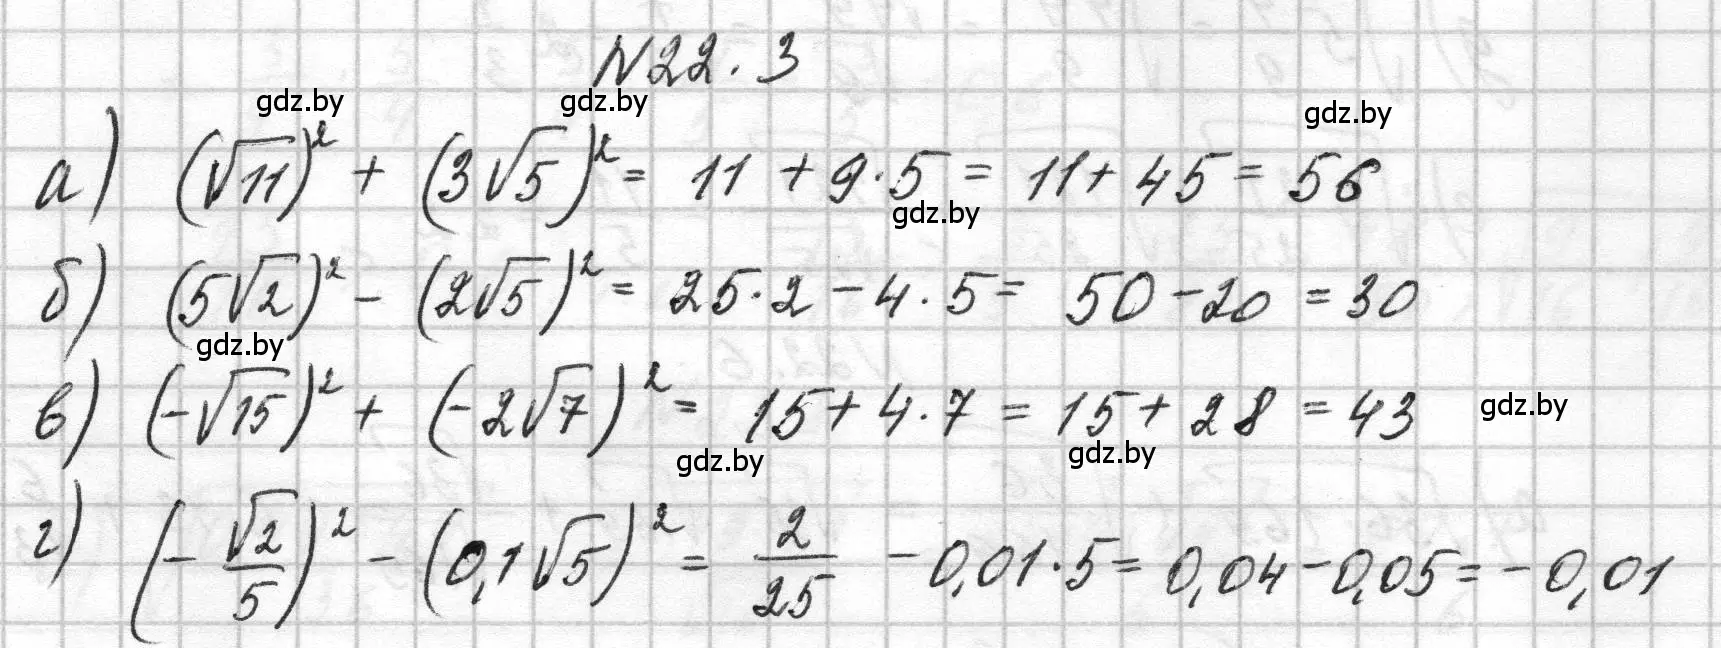 N22.3
gdz.by gdz.by gdz.by
а) (√11)² + (3√5)² = 11 + 9·5 = 11 + 45 = 56
gdz.by
б) (5√2)² - (2√5)² = 25·2 - 4·5 = 50 - 20 = 30
gdz.by
в) (-√15)² + (-2√7)² = 15 + 4·7 = 15 + 28 = 43
gdz.by
gdz.by gdz.by
г) (-√2/5)² - (0,1√5)² = 2/25 - 0,01·5 = 0,04 - 0,05 = -0,01